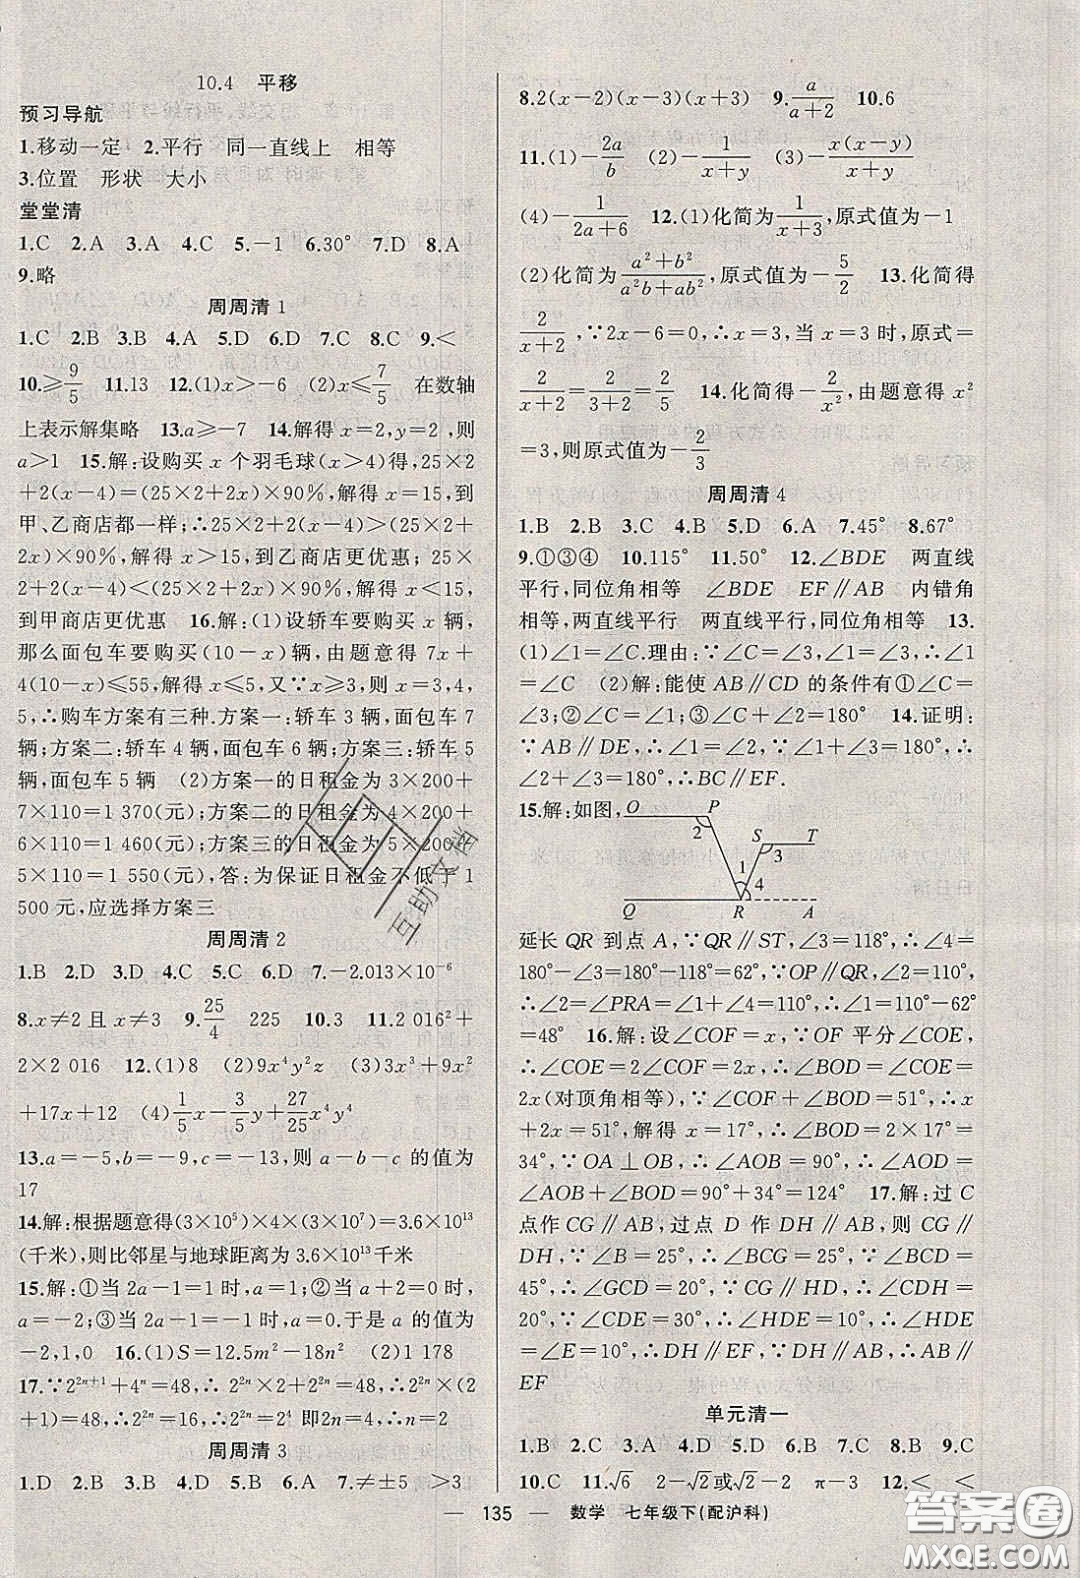 10.4 平移
预习导航
1.移动一定 2.平行 同一直线上 相等
3.位置 形状 大小
堂堂清
1.C 2.A 3.A 4.C 5.-1 6.30° 7.D 8.A
9.略
周周清1
1.C 2.B 3.B 4.A 5.D 6.D 7.C 8.C 9.<
10.≥9/5 11.13 12.(1)x>-6 (2)x≤7/5 在数轴
上表示解集略 13.a≥-7 14.解得 x=2,y=2,则
a>1 15.解:设购买 x 个羽毛球(x>4)得,25×2
+2(x-4)=(25×2+2x)×90%,解得 x=15,到
甲、乙商店都一样;∴25×2+2(x-4)>(25×2+
2x)×90%,解得 x>15,到乙商店更优惠;25×
2+2(x-4)<(25×2+2x)×90%,解得 x<15,
到甲商店更优惠 16.解:(1)设轿车要购买 x 辆,
那么面包车要购买(10-x)辆,由题意得 7x+
4(10-x)≤55,解得 x≤5,又∵x≥3,则 x=3,4,
5,∴购车方案有三种.方案一:轿车 3 辆,面包车 7
辆;方案二:轿车 4 辆,面包车 6 辆;方案三:轿车 5
辆,面包车 5 辆 (2)方案一的日租金为 3×200+
7×110=1 370(元);方案二的日租金为 4×200+
6×110=1 460(元);方案三的日租金为 5×200+
5×110=1 550(元),答:为保证日租金不低于 1
500 元,应选择方案三
周周清2
1.B 2.D 3.D 4.C 5.C 6.D 7.-2.013×10⁻⁶
8.x≠2 且 x≠3 9.25/4 225 10.3 11.2 016²+
2×2 016 12.(1)8 (2)9x⁴y²z (3)4x³+9x²
+17x+12 (4)1/5x-3/5y+27/25x⁴y⁴
13.a=-5,b=-9,c=-13,则 a-b-c 的值为
17
14.解:根据题意得(3×10⁵)×4×(3×10⁷)=3.6×10¹³
(千米),则比邻星与地球距离为 3.6×10¹³千米
15.解:①当 2a-1=1 时,a=1;②当 a+2=0 时,
a=-2;③当 2a-1=-1 时,a=0.于是 a 的值为
-2,1,0 16.(1)S=12.5m²-18n² (2)1 178
17.∵2²ⁿ⁺¹+4ⁿ=48,∴2²ⁿ×2+2²ⁿ=48,∴2²ⁿ×(2
+1)=48,∴2²ⁿ=16,∴2²ⁿ=2⁴ 即2n=4,∴n=2
周周清3
1.D 2.B 3.D 4.C 5.A 6.A 7.≠±5 >3
8.2(x-2)(x-3)(x+3) 9.a/(a+2) 10.6
11.(1)-2a/b (2)-1/(x+y) (3)-x(x-y)/(x+y)
(4)-1/(2a+6) 12.(1)化简为1/(x+3),原式值为-1
(2)化简为(a²+b²)/(a²b+ab²),原式值为-5/2 13.化简得
2/(x+2),∵2x-6=0,∴x=3,当 x=3 时,原式=
2/(x+2)=2/(3+2)=2/5 14.化简得-2/x²,由题意得 x²
=3,则原式值为-2/3
周周清4
1.B 2.B 3.C 4.B 5.D 6.A 7.45° 8.67°
9.①③④ 10.115° 11.50° 12.∠BDE 两直线
平行,同位角相等 ∠BDE EF∥AB 内错角
相等,两直线平行 两直线平行,同位角相等 13.
(1)∠1=∠C.理由:∵∠C=∠3,∠1=∠3,∴∠1
=∠C (2)解:能使 AB∥CD 的条件有①∠C=
∠3;②∠1=∠2;③∠C+∠2=180° 14.证明:
∵AB∥DE,∴∠1=∠2,∵∠1+∠3=180°,∴
∠2+∠3=180°,∴BC∥EF.
15.解:如图,
O P
2 S T
1 3
4
Q R A
延长 QR 到点 A,∵QR∥ST,∠3=118°,∴∠4=
180°-∠3=180°-118°=62°,∵OP∥QR,∠2=110°,
∴∠2=∠PRA=∠1+∠4=110°,∴∠1=110°-62°
=48° 16.解:设∠COF=x,∵OF 平分∠COE,
∴∠COE=2∠COF=2x,∴∠BOD=∠COE=
2x(对顶角相等),∵∠COF+∠BOD=51°,∴x
+2x=51°,解得 x=17°,∴∠BOD=2×17°=
34°,∵OA⊥OB,∴∠AOB=90°,∴∠AOD=
∠AOB+∠BOD=90°+34°=124° 17.解:过 C
点作 CG∥AB,过点 D 作 DH∥AB,则 CG∥
DH,∵∠B=25°,∴∠BCG=25°,∵∠BCD=
45°,∴∠GCD=20°,∵CG∥HD,∴∠CDH=
20°,∵∠CDE=30°,∴∠HDE=10°,∴∠HDE
=∠E=10°,∴DH∥EF,∵DH∥AB,∴AB∥
EF
单元清一
1.B 2.C 3.A 4.D 5.B 6.D 7.C 8.B 9.C
10.C 11.√6 2-√2或√2-2 π-3 12.< <
— 135 — 数学 七年级下(配沪科)
互助文档
答案圈
MXQE.COM